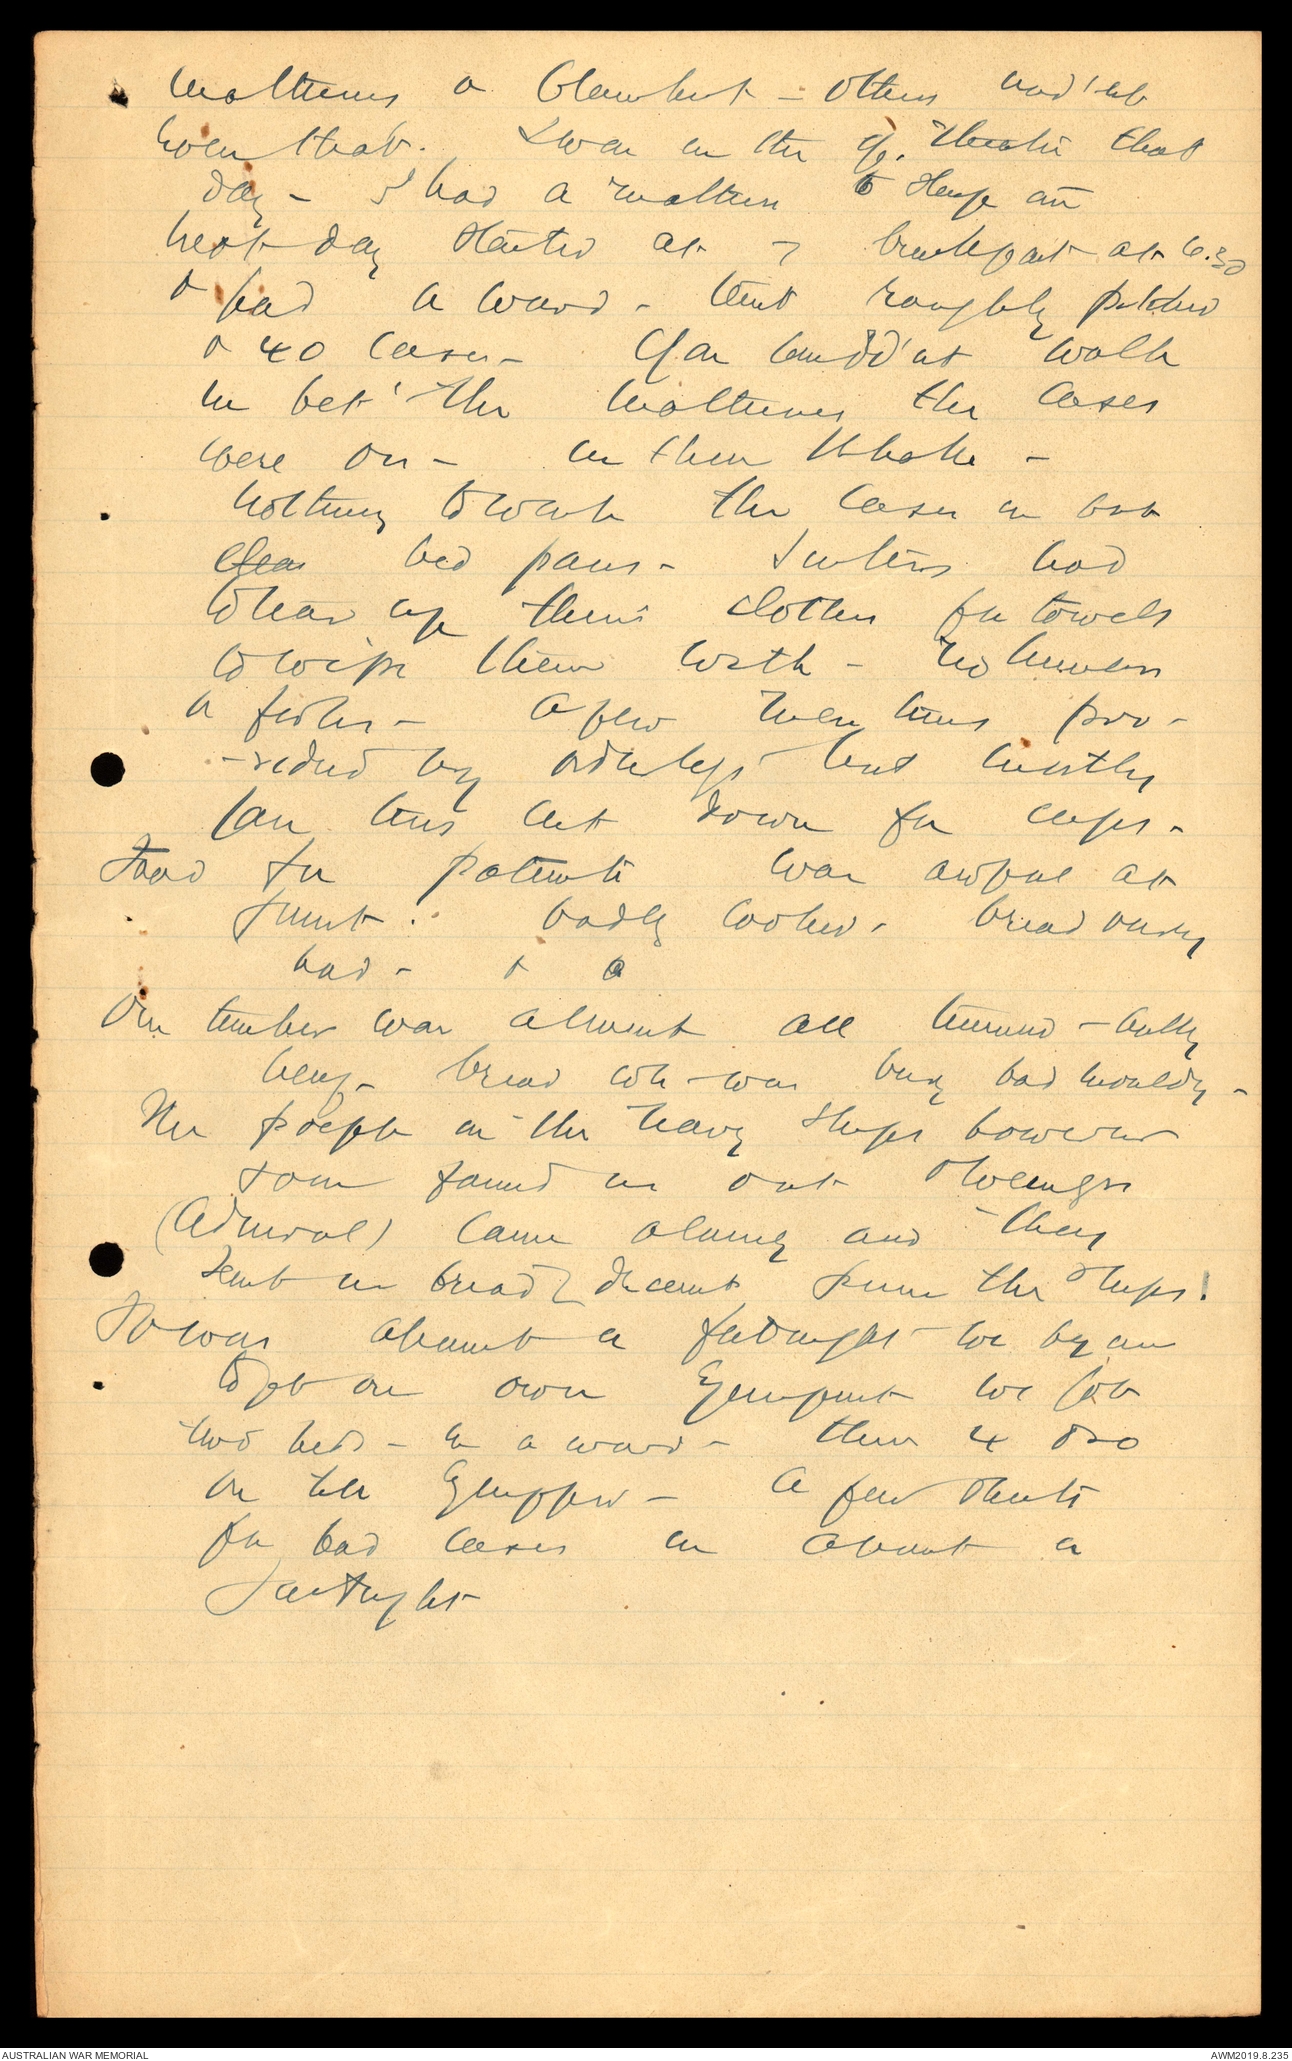 mattress or blanket - others hadn't
even that. I was in the Op. Theatre that
day - I had a mattress to sleep on
next day started at 7 breakfast at 6.30
& had a ward - tent roughly pitched
& 40 cases - You couldn't walk
in bet' the mattresses the cases
were on - in their
nothing to wash the cases in but
bed pans - Sisters had
to tear up their clothes for towels
to wipe them with - no knives
or forks - A few men tins pro-
-vided by orderlys but mostly
jam tins cut down for cups -
Food for patients was awful at
first. badly cooked - bread very
bad - &
Our tucker was almost all tinned - bully
beef - bread wh was very bad mouldy -
The people in the Navy ships however
soon found us out
(Admiral) came along and they
sent us bread decent from the ships!
It was about a fortnight we began
to get our own Equipment we got
two beds - in a ward - then 4 & so
on till Equipped - A few sheets
for bad cases in about a
fortnight
AUSTRALIAN WAR MEMORIAL
AWM2019.8.235